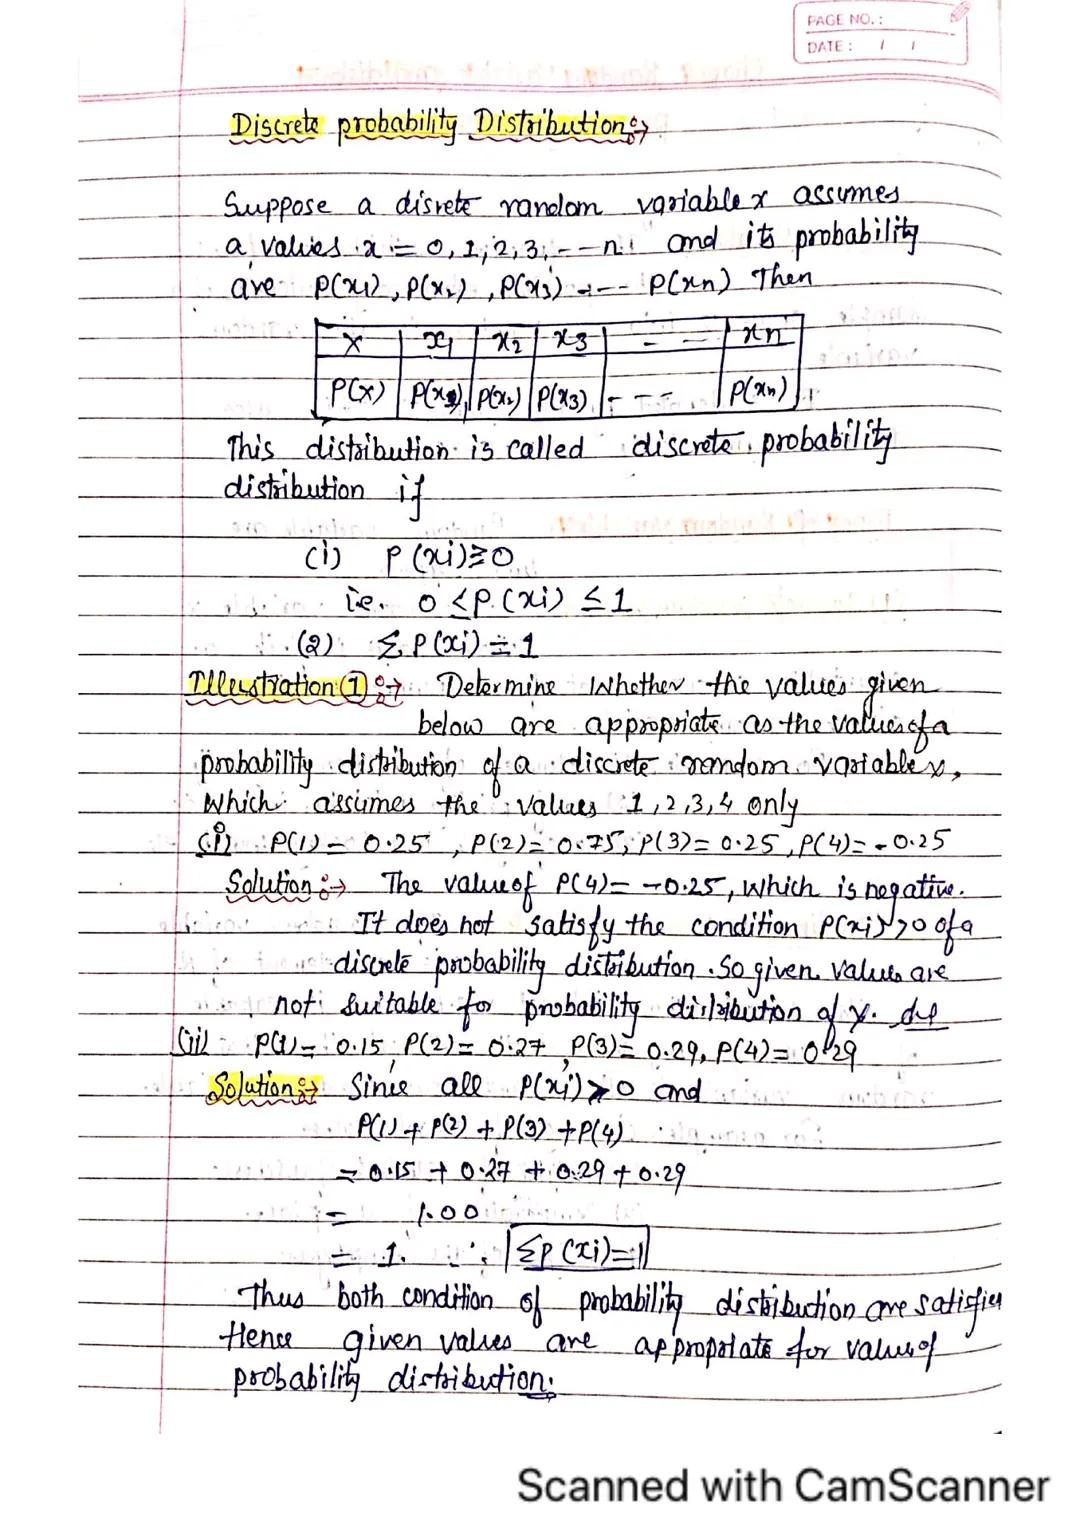 PAGE NO.:
DATE: / /
Discrete probability Distribution :→
Suppose a disrete random variable x assumes
a values x = 0, 1, 2, 3, - - n. and its probability
are P(x1), P(x2), P(x3) ---- P(xn) Then
X x1 x2 x3 - - xn
P(X) P(x1) P(x2) P(x3) - - - P(xn)
This distribution is called discrete probability
distribution if
(i) P(xi) ≥ 0
i.e. 0 ≤ P(xi) ≤ 1
(2) Σ P(xi) = 1
Illustration ① :→ Determine whether the values given
below are appropriate as the values of a
probability distribution of a discrete random variable x,
which assumes the values 1, 2, 3, 4 only
(i) P(1) = 0.25, P(2) = 0.75, P(3) = 0.25, P(4) = -0.25
Solution :→ The value of P(4) = -0.25, which is negative.
It does not satisfy the condition P(xi) ≥ 0 of a
discrete probability distribution. So given values are
not suitable for probability distribution of x.
(ii) P(1) = 0.15, P(2) = 0.27, P(3) = 0.29, P(4) = 0.29
Solution :→ Since all P(xi) > 0 and
P(1) + P(2) + P(3) + P(4)
= 0.15 + 0.27 + 0.29 + 0.29
= 1.00
= 1. ∴ ΣP(xi) = 1
Thus both condition of probability distribution are satisfies
Hence given values are appropriate for value of
probability distribution.
Scanned with CamScanner